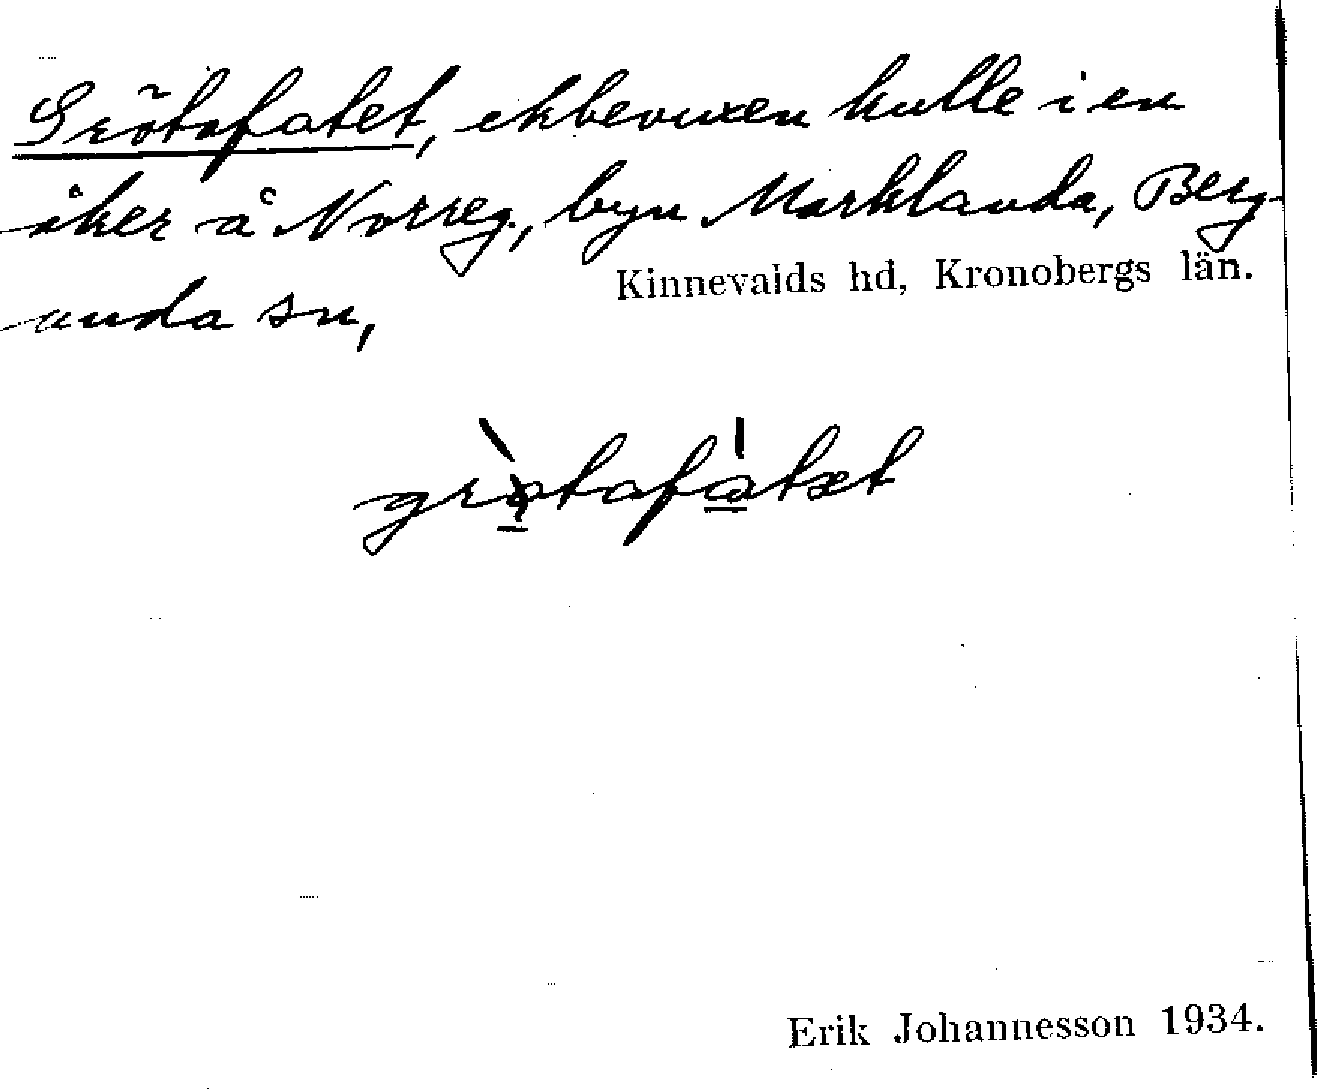 Grötafatet, ekbevuxen kulle i en
åker å Norreg., byn Marklanda, Berg-
unda sn,
Kinnevalds hd, Kronobergs län.
Erik Johannesson 1934.